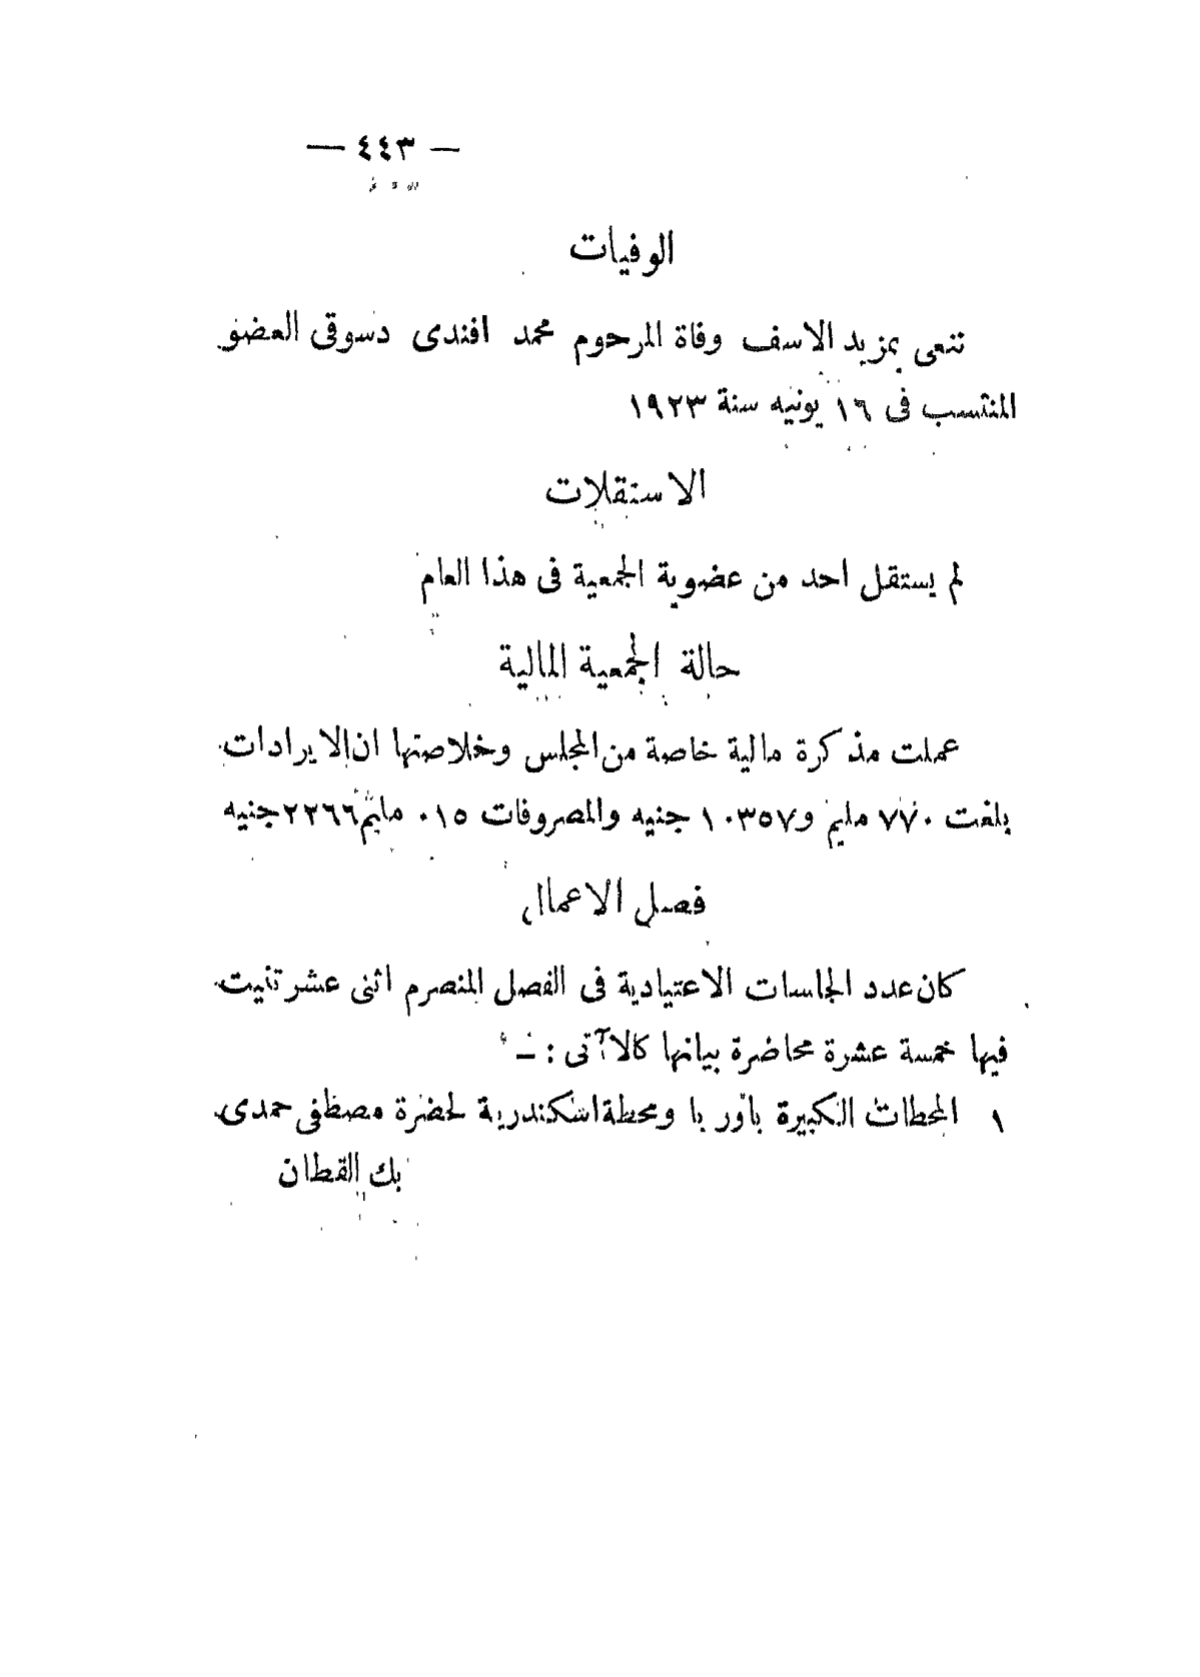 — ٤٤٣ —
الوفيات
ننعى بمزيد الاسف وفاة المرحوم محمد افندى دسوقى العضو
المنتسب فى ١٦ يونيه سنة ١٩٢٣
الاستقلات
لم يستقل احد من عضوية الجمعية فى هذا العام
حالة الجمعية المالية
عملت مذكرة مالية خاصة من المجلس وخلاصتها ان الايرادات
بلغت ٧٧٠ مليم و١٠٣٥٧ جنيه والمصروفات ٠١٥ مليم ٢٢٦٦ جنيه
فصل الاعمال
كان عدد الجلسات الاعتيادية فى الفصل المنصرم اثنى عشر تليت
فيها خمسة عشرة محاضرة بيانها كالاآتى : —
١ المحطات الكبيرة باوربا ومحطة اسكندرية لحضرة مصطفى حمدى
بك القطان